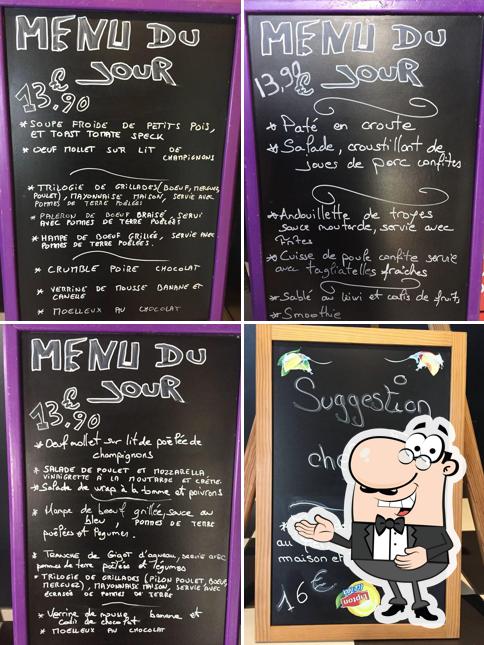 MENU DU
JOUR
13,90€
* SOUPE FROIDE DE PETITS POIS,
ET TOAST TOMATE SPECK
* OEUF MOLLET SUR LIT DE
CHAMPIGNONS
* TRILOGIE DE GRILLADES (BOEUF, MERGUEZ,
POULET), MAYONNAISE MAISON, SERVIE AVEC
POMMES DE TERRE POÊLÉES
* PALERON DE BOEUF BRAISÉ, SERVI
AVEC POMMES DE TERRE POÊLÉES
* HAMPE DE BOEUF GRILLÉE, SERVIE AVEC
POMMES DE TERRE POÊLÉES.
* CRUMBLE POIRE CHOCOLAT
* VERRINE DE MOUSSE BANANE ET
CANELLE
* MOELLEUX AU CHOCOLAT
MENU DU
JOUR
13,90€
* Paté en croute
* Salade, croustillant de
joues de porc confites
* Andouillette de troyes
sauce moutarde, servie avec
frites
* Cuisse de poule confite servie
avec tagliatelles fraîches
* Sablé au kiwi et coulis de fruits
* Smoothie
MENU DU
JOUR
13,90€
* Oeuf mollet sur lit de poêlée de
champignons
* SALADE DE POULET ET MOZZARELLA
VINAIGRETTE À LA MOUTARDE ET CRÈME.
* Salade de wrap à la tomme et poivrons
* Hampe de boeuf grillée, sauce au
bleu, POMMES DE TERRE
poêlées et légumes.
* TRANCHE DE Gigot d'agneau, SERVIE AVEC
pommes de terre poêlées et légumes
* TRILOGIE DE GRILLADES (PILON POULET, BOEUF,
MERGUEZ), MAYONNAISE MAISON, SERVIE AVEC
ÉCRASÉ DE POMMES DE TERRE
* Verrine de mousse banane et
coulis de chocolat
* MOELLEUX AU CHOCOLAT
Suggestion
che
*
au
maison et
16€
Lipton